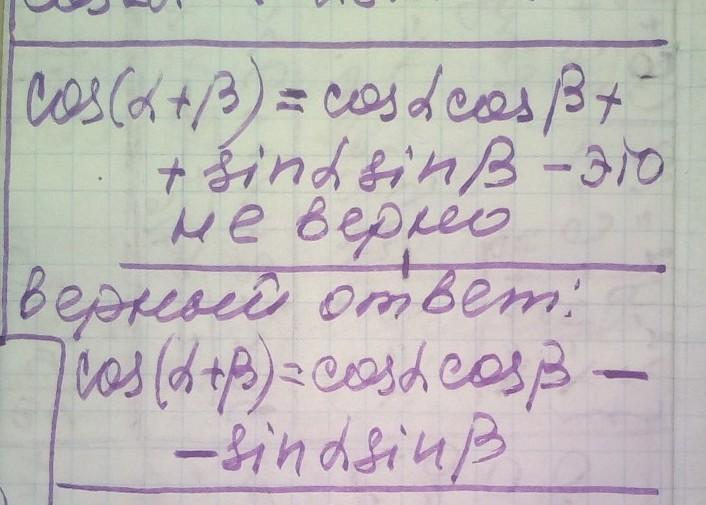 cos(α+β)=cosαcosβ+
+sinαsinβ – это
не верно
верный ответ:
cos(α+β)=cosαcosβ –
–sinαsinβ